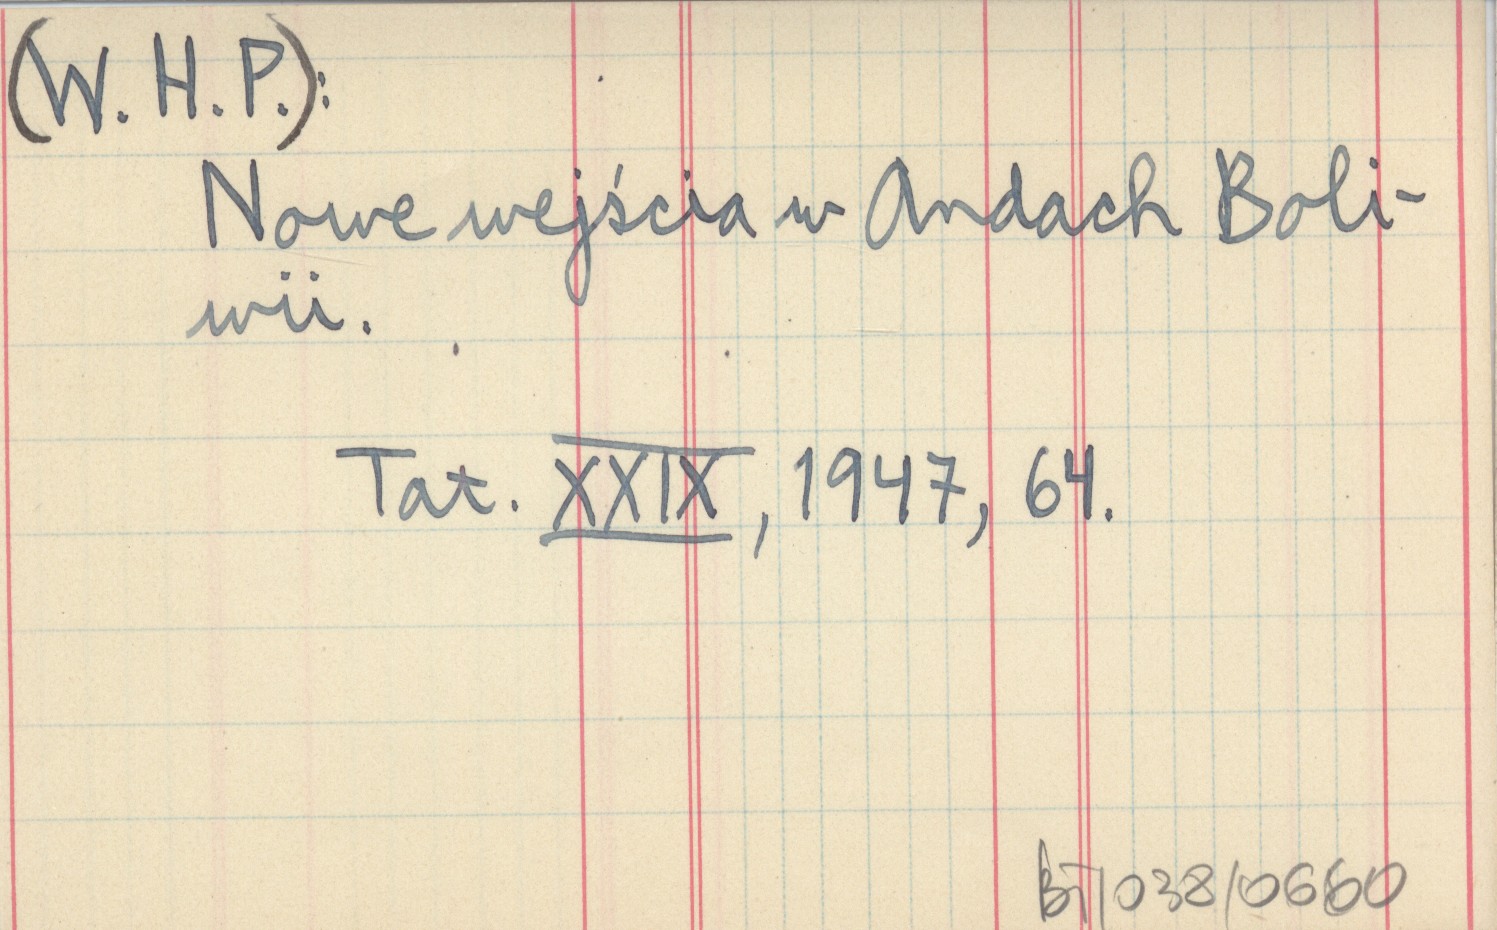 (W. H. P.):
Nowe wejścia w Andach Boli-
wii.
Tat. XXIX, 1947, 64.
BT/038/0660